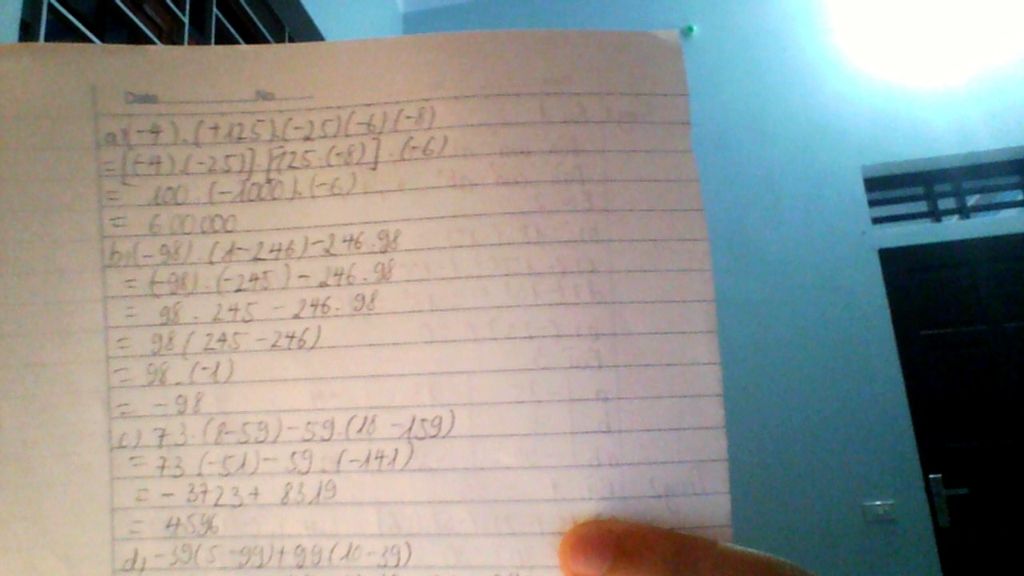 Date No
a) (-4).(+125).(-25)(-6)(-8)
= [(-4).(-25)].[125.(-8)].(-6)
= 100.(-1000).(-6)
= 600000
b) (-98).(1-246)-246.98
= (-98).(-245)-246.98
= 98.245-246.98
= 98(245-246)
= 98.(-1)
= -98
c) 73.(8-59)-59.(18-159)
= 73.(-51)-59.(-141)
= -3723+8319
= 4596
d) -39(5-99)+99(10-39)